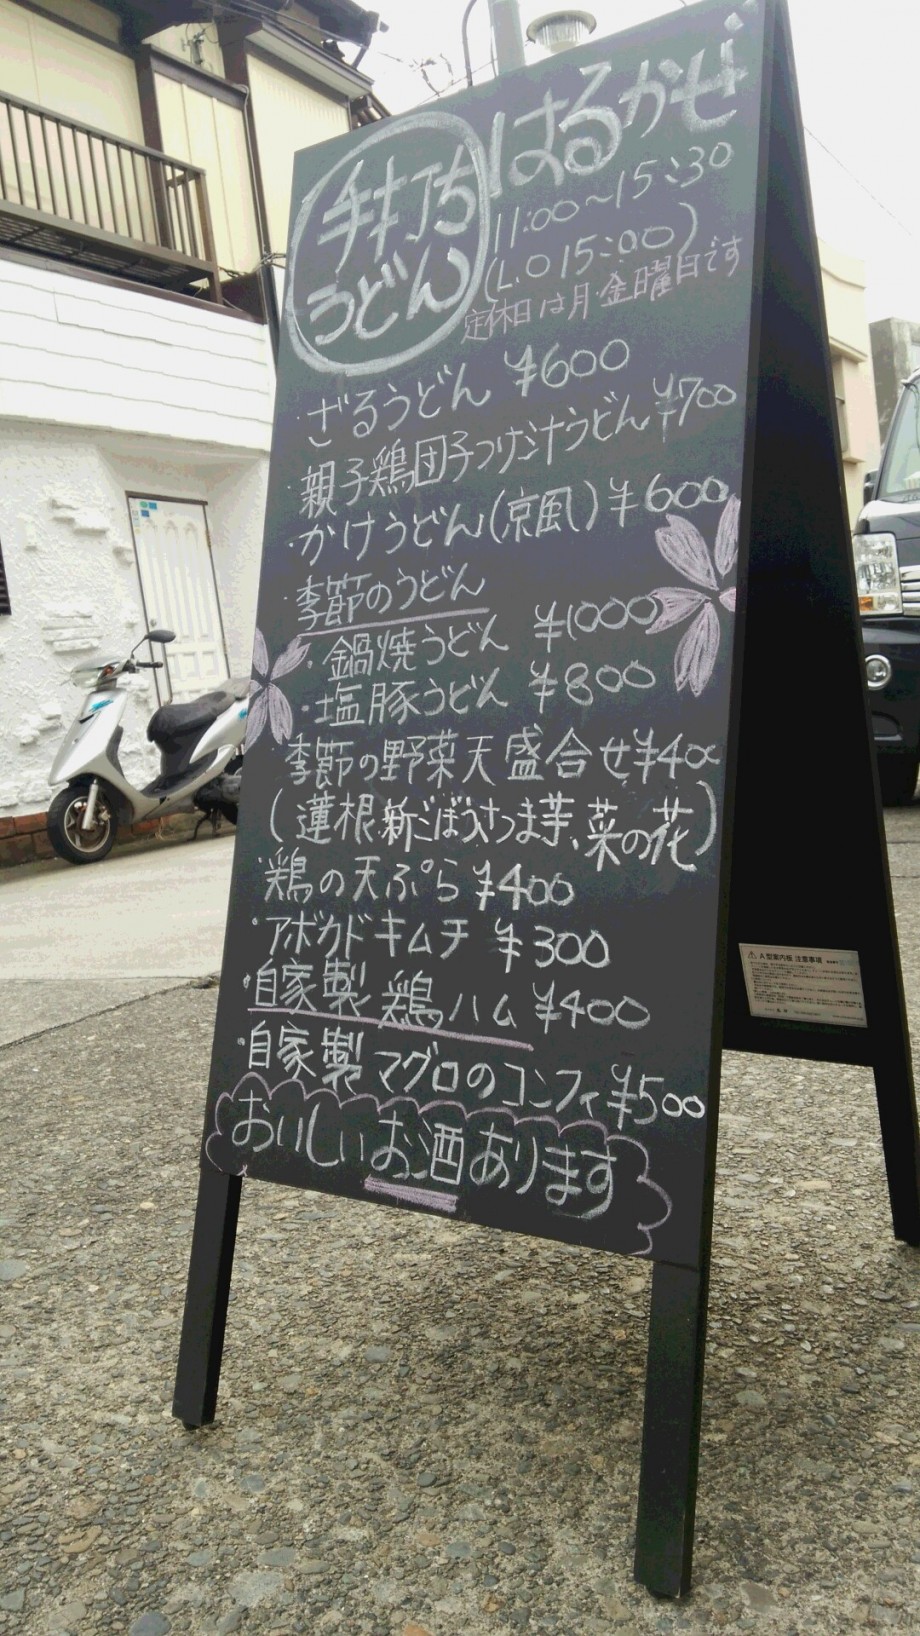 手打ち
うどん
はるかぜ
11:00~15:30
(L.O 15:00)
定休日は月・金曜日です
・ざるうどん ¥600
・親子鶏団子つけ汁うどん ¥700
・かけうどん(京風) ¥600
・季節のうどん
・鍋焼うどん ¥1000
・塩豚うどん ¥800
・季節の野菜天盛合せ ¥400
(蓮根、新ごぼう、さつま芋、菜の花)
・鶏の天ぷら ¥400
・アボカドキムチ ¥300
・自家製 鶏ハム ¥400
・自家製 マグロのコンフィ ¥500
おいしいお酒あります
A型案内板 注意事項